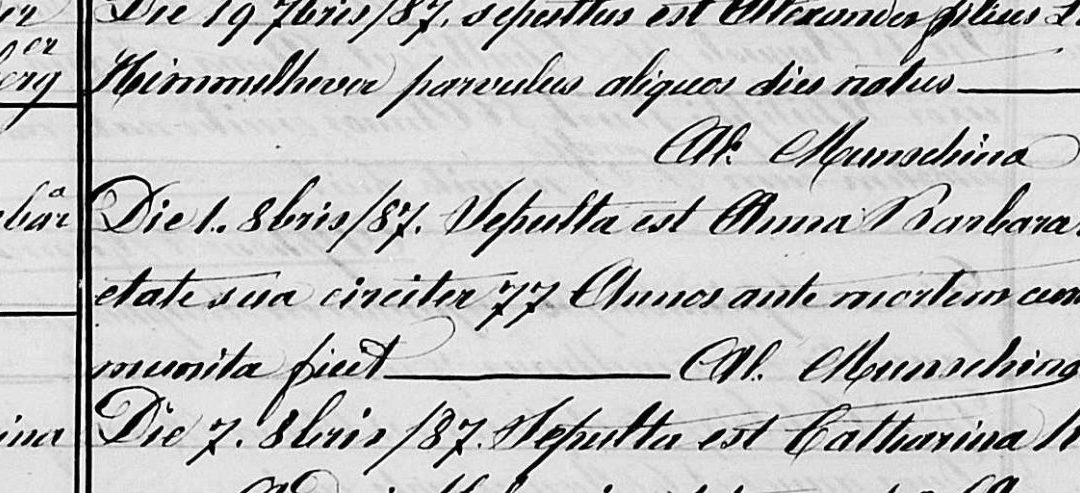 Die 19 7bris/87. sepultus est Alexander filius
Himmelhever parvulus aliquos dies natus
Al. Munschina
Die 1. 8bris/87. Sepulta est Anna Barbara
etate sua circiter 77 Annos ante mortem
munita fuit Al. Munschina
ina Die 7. 8bris/87. Sepulta est Catharina